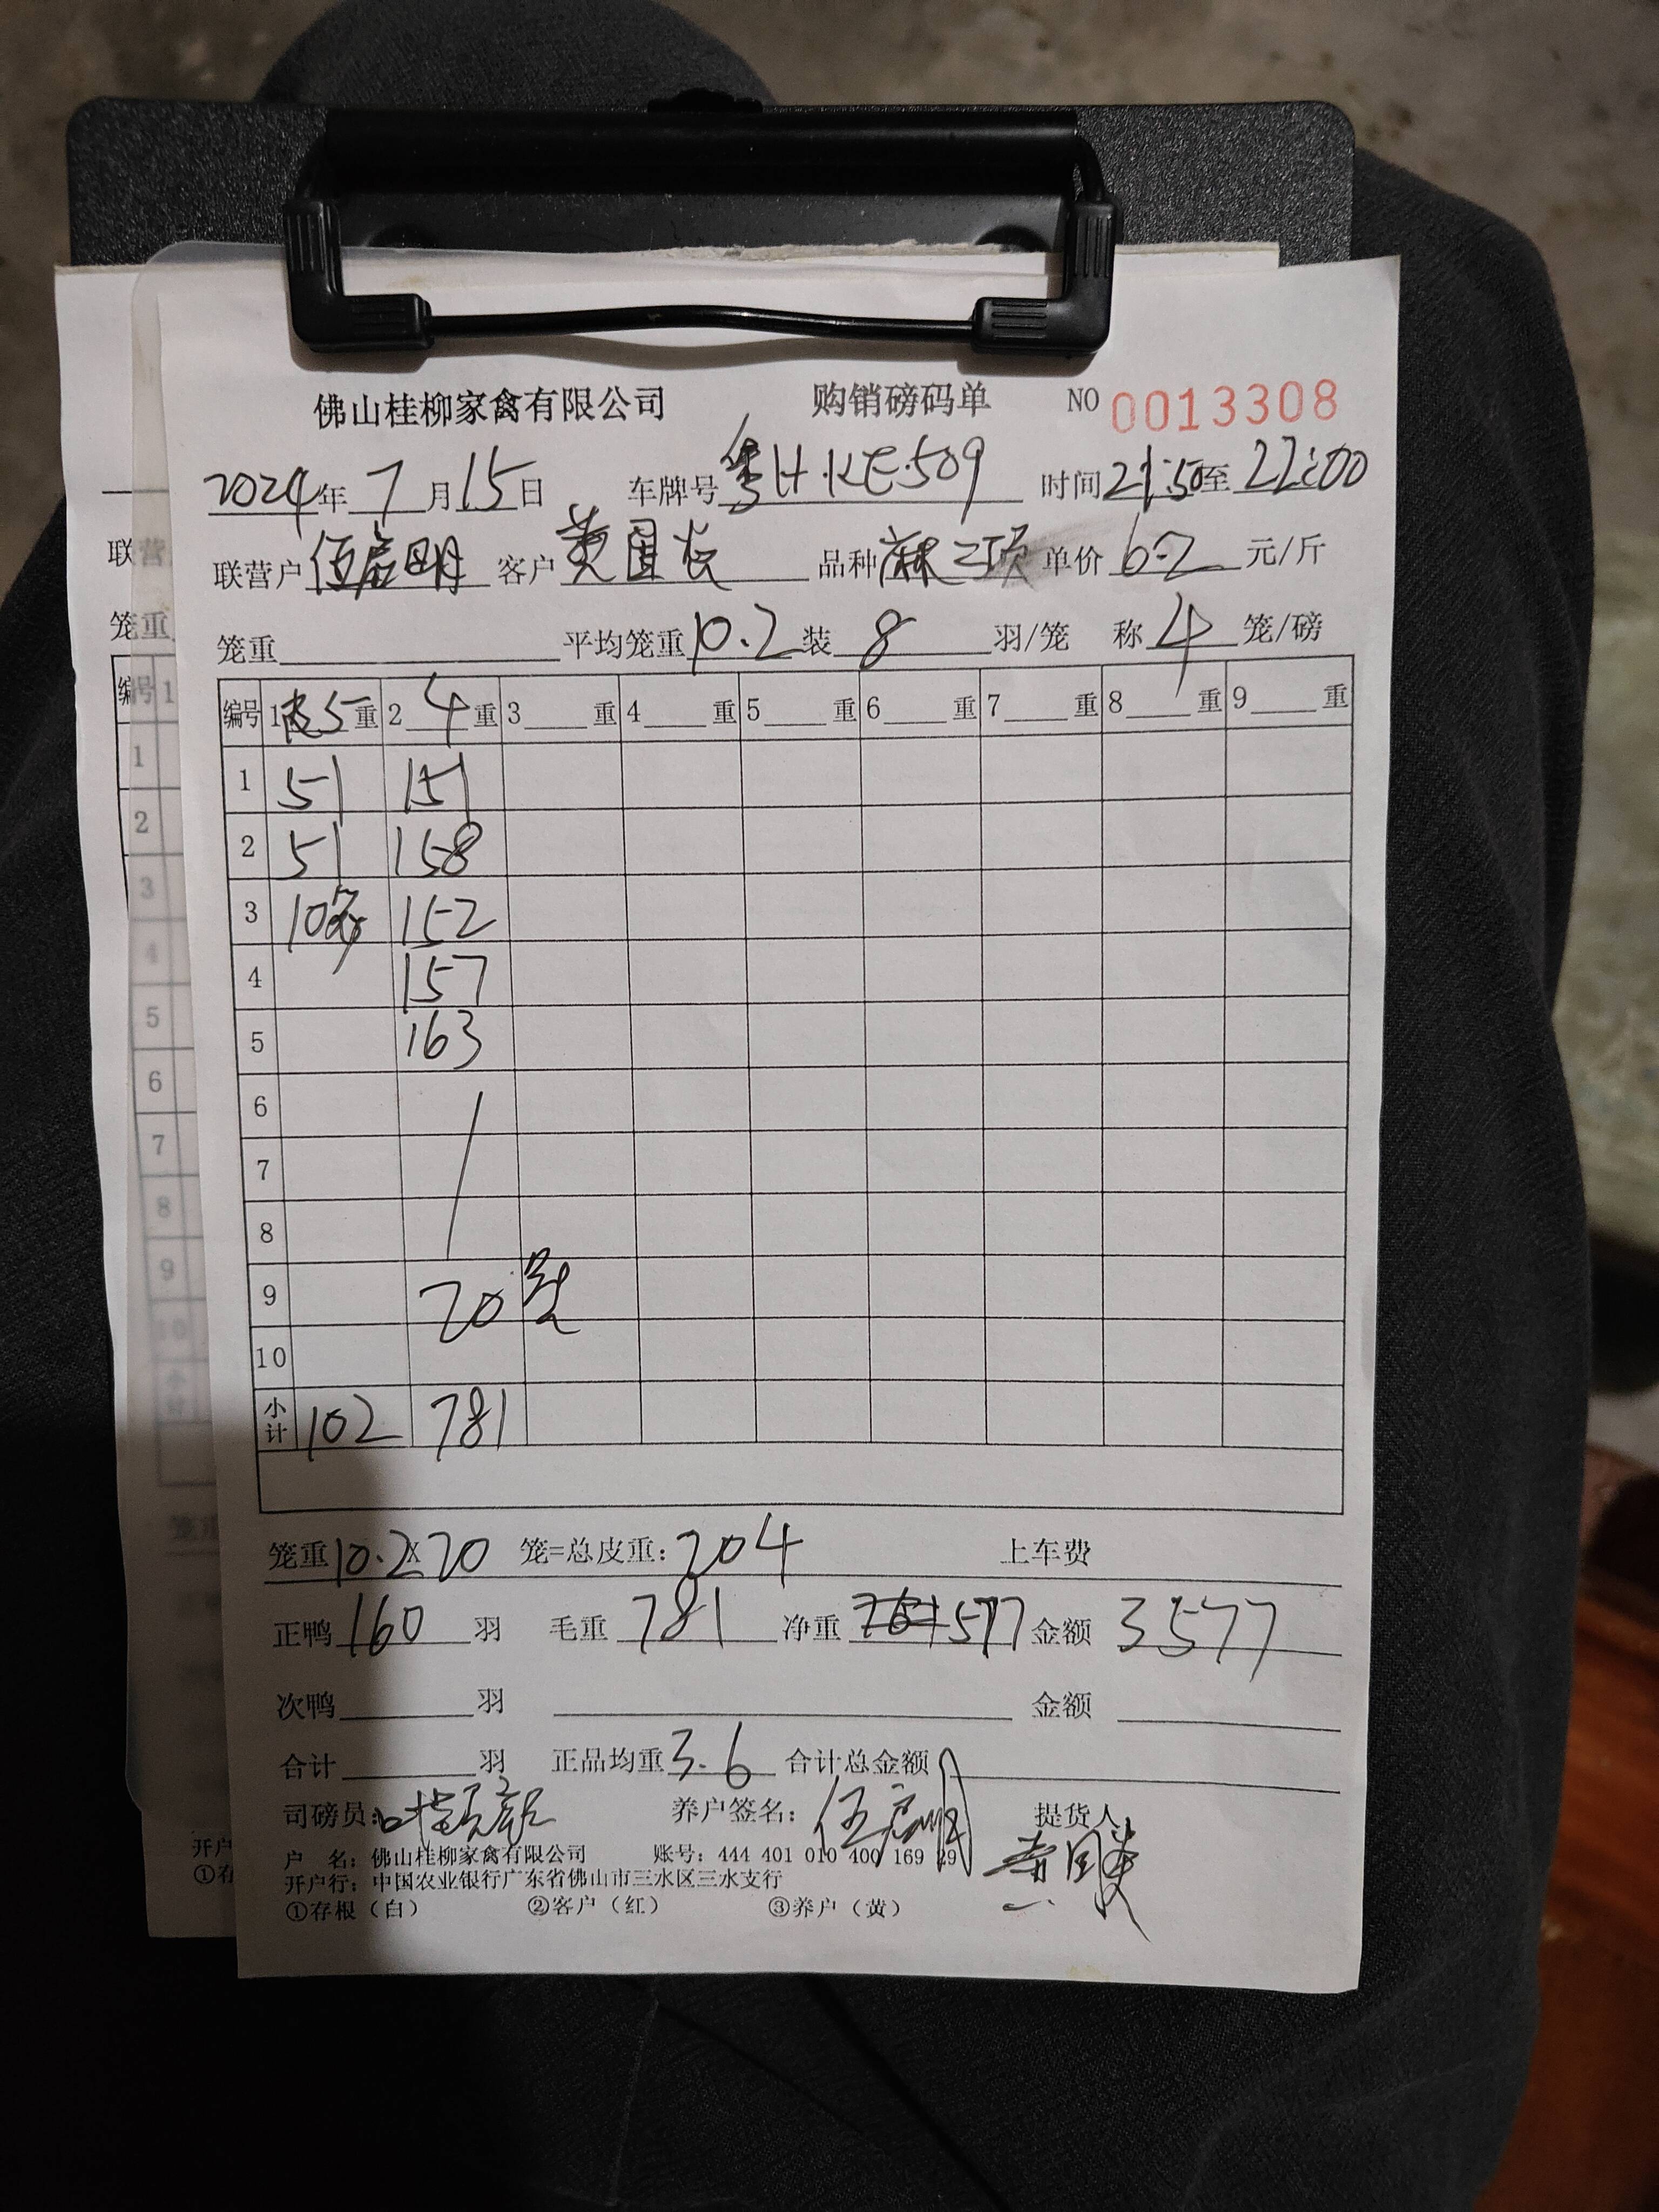 佛山桂柳家禽有限公司 购销磅码单 NO 0013308
2024年7月15日 车牌号 粤H·KE·509 时间 21:50至22:00
联营户 伍启明 客户 黄国 品种 麻 单价 6.2 元/斤
笼重 平均笼重 10.2 装 8 羽/笼 称 4 笼/磅
编号 1 皮5 重 2 4 重 3 重 4 重 5 重 6 重 7 重 8 重 9 重
1 51 151
2 51 158
3 10 152
4 157
5 163
6
7
8
9 20笼
10
小计 102 781
笼重 10.2 X 20 笼=总皮重: 204 上车费
正鸭 160 羽 毛重 781 净重 577 金额 3577
次鸭 羽 金额
合计 羽 正品均重 3.6 合计总金额
司磅员: 叶 养户签名: 伍启明 提货人
户 名: 佛山桂柳家禽有限公司 账号: 444 401 010 400 169 29
开户行: 中国农业银行广东省佛山市三水区三水支行
①存根（白） ②客户（红） ③养户（黄）
联营
笼重
编号 1
1
2
3
4
5
6
7
8
9
10
小计
笼重
开户
①存